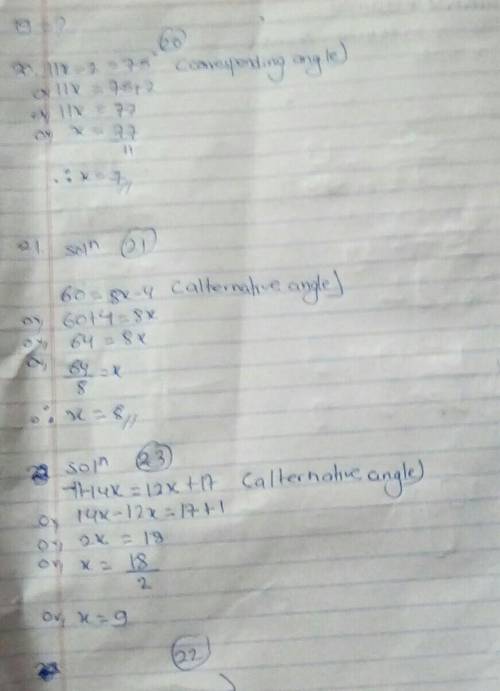 19 = ?
20
20. 11x - 2 = 75 (corresponding angle)
or, 11x = 75+2
or, 11x = 77
or, x = 77
11
∴ x = 7,,
21. solⁿ 21
60 = 8x-4 (alternative angle)
or, 60+4 = 8x
or, 64 = 8x
or, 64/8 = x
∴ x = 8,,
solⁿ 23
-1+14x = 12x+17 (alternative angle)
or, 14x-12x = 17+1
or, 2x = 18
or, x = 18/2
or, x = 9
22